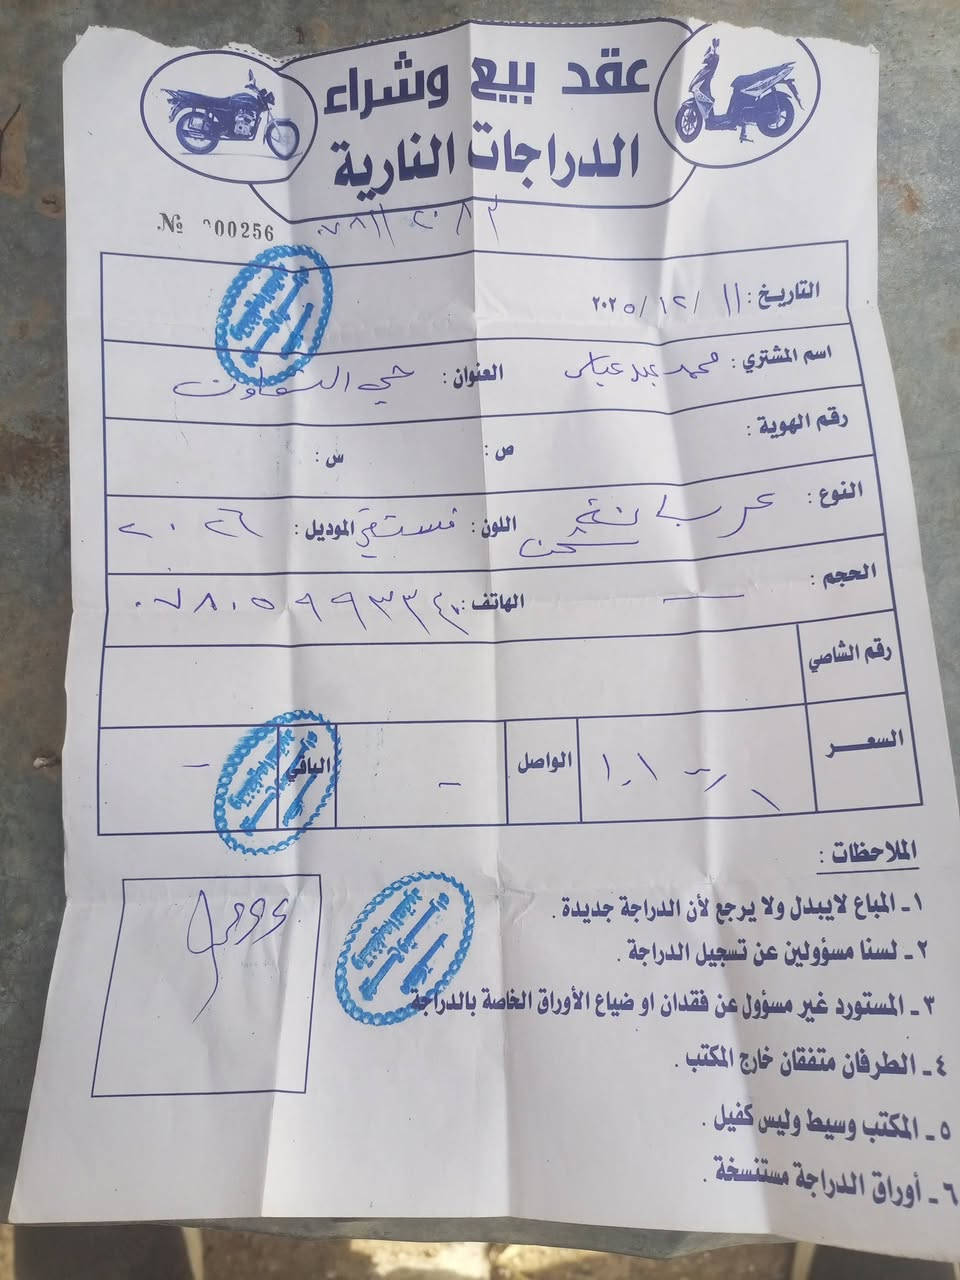 عقد بيع وشراء
الدراجات النارية
№ 000256
التاريخ : ١١ / ١٢ / ٢٠٢٥
اسم المشتري : محمد عبد عباس العنوان : حي التعاون
رقم الهوية : ص : س :
النوع : شحن اللون : فستقي الموديل : ٢٠٢٦
الحجم : — الهاتف : ٠٧٨٠٥٩٩٣٣٤٠
رقم الشاصي
السعـــر الواصل - الباقي -
الملاحظات :
١ ـ المباع لايبدل ولا يرجع لأن الدراجة جديدة .
٢ ـ لسنا مسؤولين عن تسجيل الدراجة .
٣ ـ المستورد غير مسؤول عن فقدان او ضياع الأوراق الخاصة بالدراجة
٤ ـ الطرفان متفقان خارج المكتب .
٥ ـ المكتب وسيط وليس كفيل .
٦ ـ أوراق الدراجة مستنسخة .